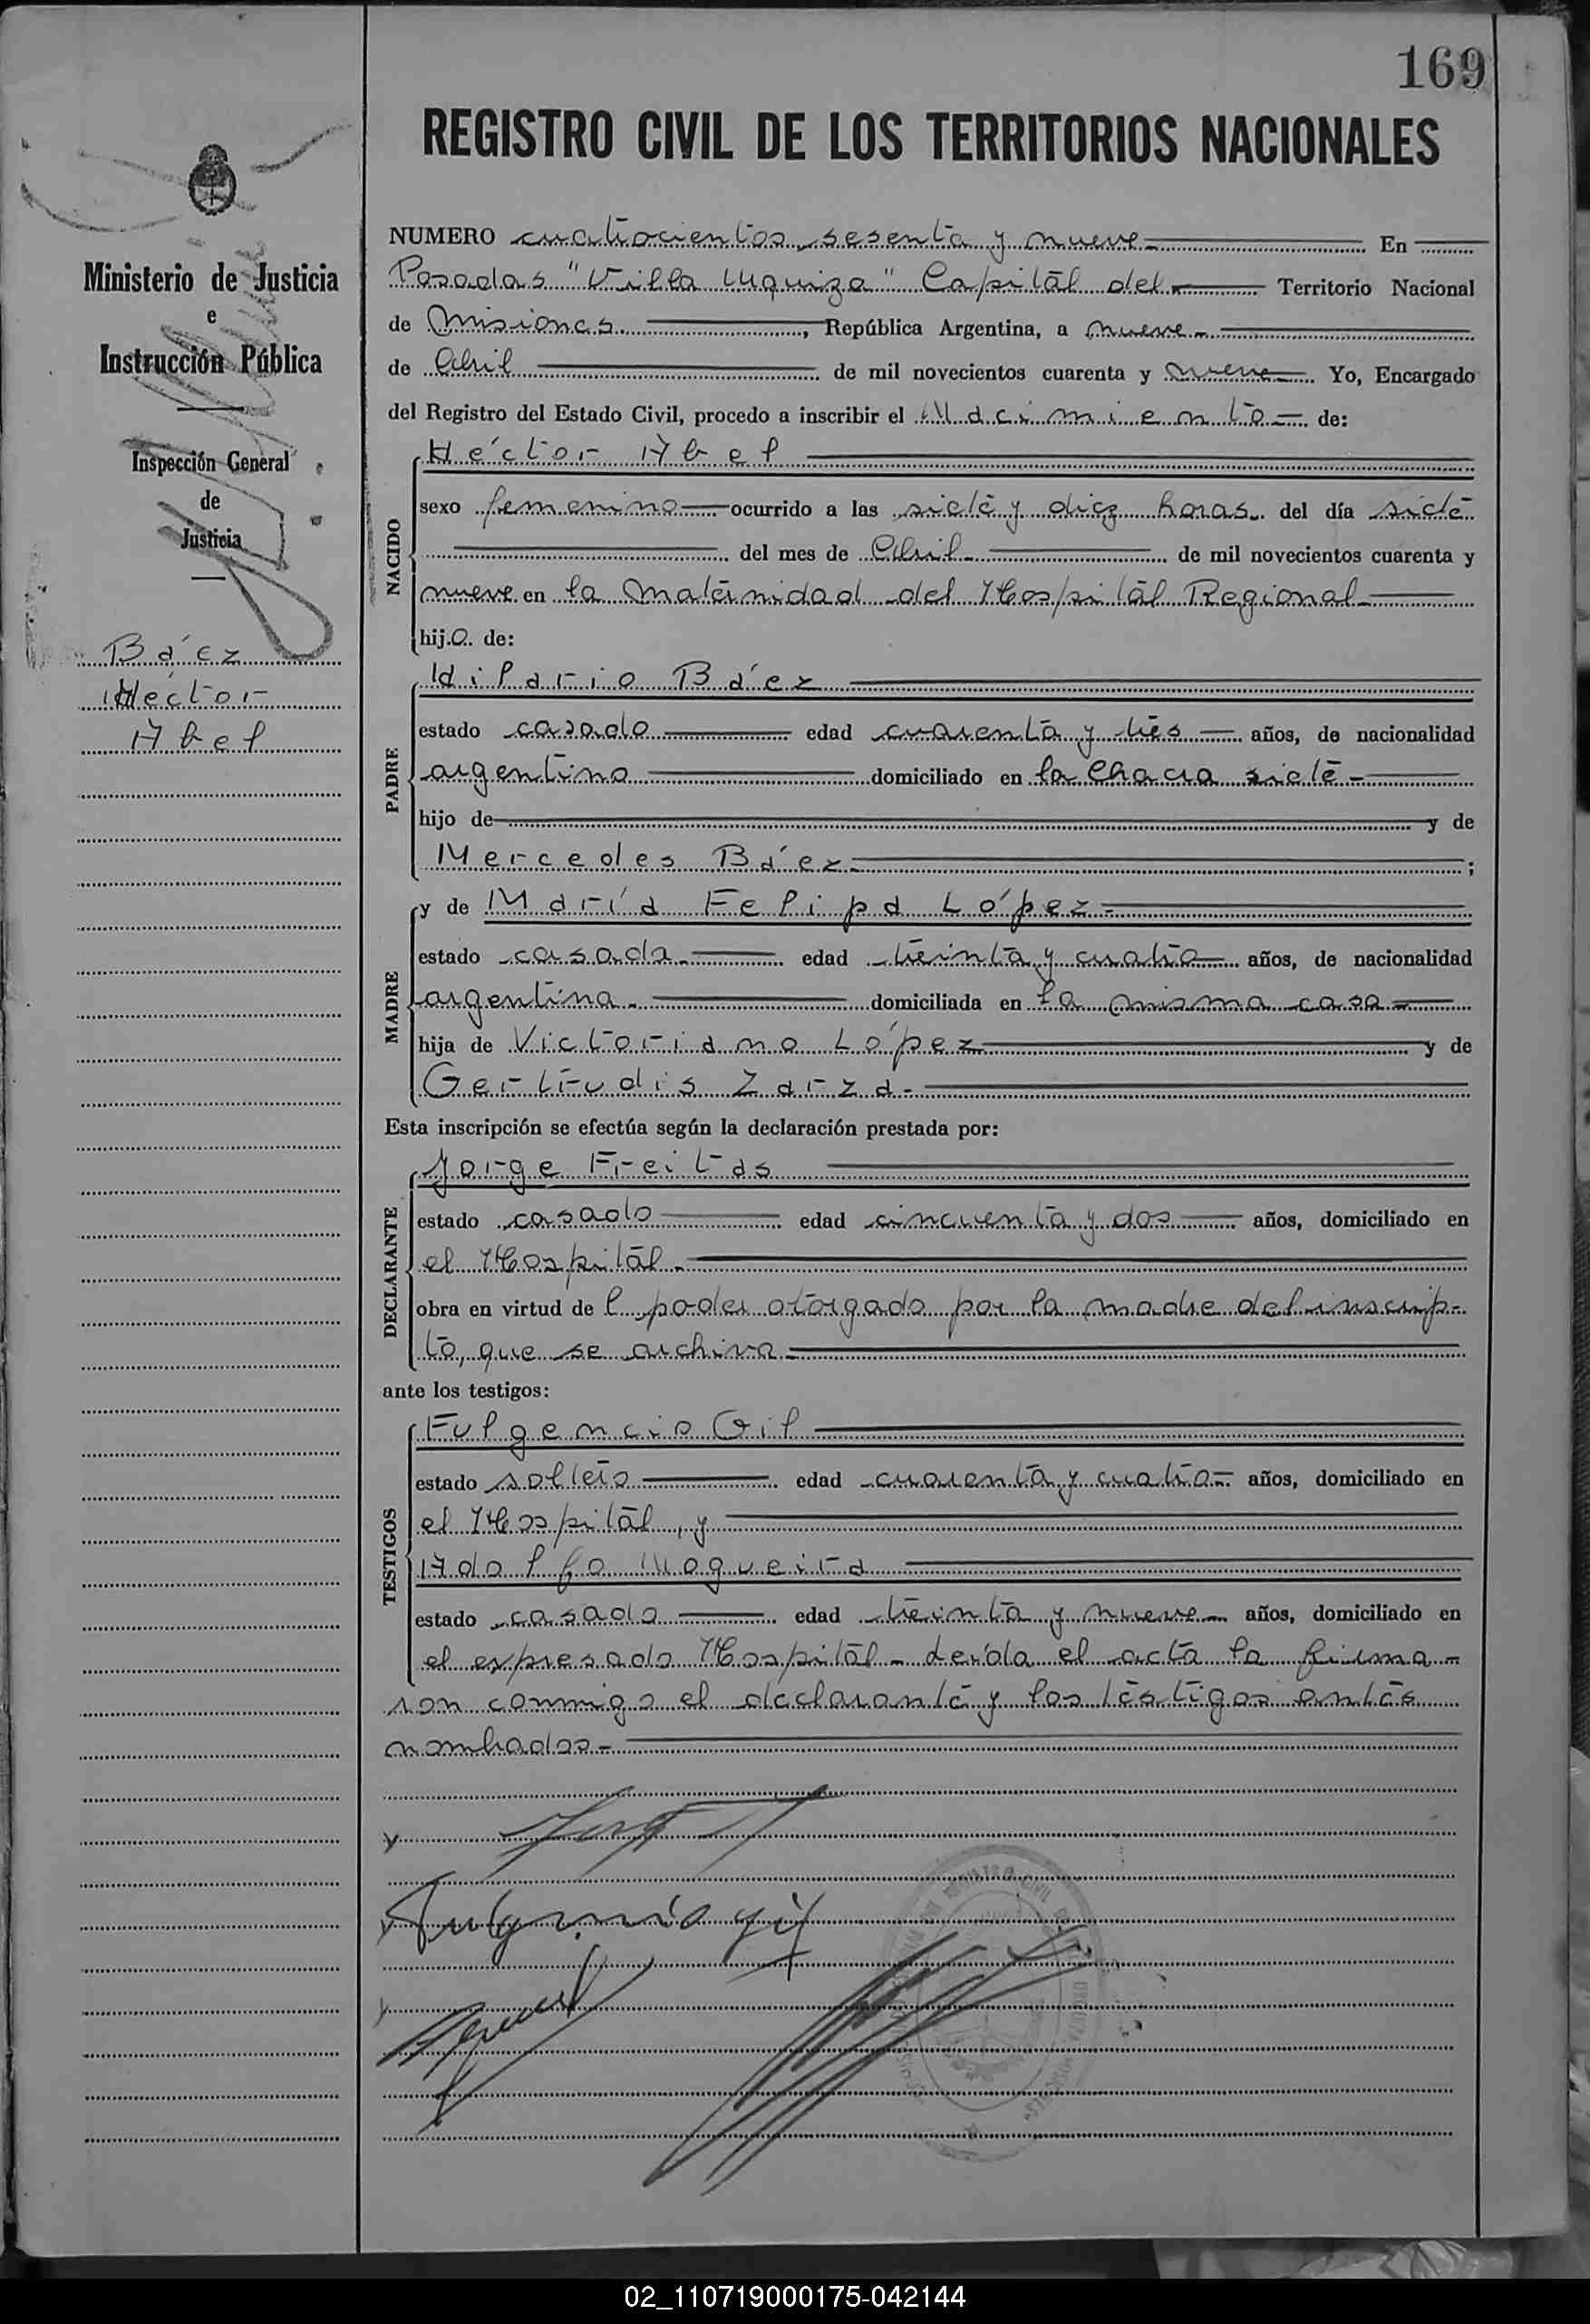 169
REGISTRO CIVIL DE LOS TERRITORIOS NACIONALES
Ministerio de Justicia
e
Instrucción Pública
Inspección General
de
Justicia
Báez
Héctor
Abel
NUMERO cuatrocientos sesenta y nueve En
Posadas "Villa Urquiza" Capital del Territorio Nacional
de Misiones, República Argentina, a nueve
de Abril de mil novecientos cuarenta y nueve Yo, Encargado
del Registro del Estado Civil, procedo a inscribir el Nacimiento de:
NACIDO
Héctor Abel
sexo femenino ocurrido a las siete y diez horas del día siete
del mes de Abril de mil novecientos cuarenta y
nueve en la Maternidad del Hospital Regional
hijo de:
PADRE
Hilario Báez
estado casado edad cuarenta y tres años, de nacionalidad
argentino domiciliado en la Chacra siete
hijo de y de
Mercedes Báez ;
MADRE
y de María Felipa López
estado casada edad treinta y cuatro años, de nacionalidad
argentina domiciliada en la misma casa
hija de Victoriano López y de
Gertrudis Zarza
Esta inscripción se efectúa según la declaración prestada por:
DECLARANTE
Jorge Freitas
estado casado edad cincuenta y dos años, domiciliado en
el Hospital
obra en virtud del poder otorgado por la madre del inscrip-
to, que se archiva
ante los testigos:
TESTIGOS
Fulgencio Gil
estado soltero edad cuarenta y cuatro años, domiciliado en
el Hospital, y
Adolfo Nogueira
estado casado edad treinta y nueve años, domiciliado en
el expresado Hospital - Leída el acta la firma-
ron conmigo el declarante y los testigos antes
nombrados
Fulgencio gil
02_110719000175-042144